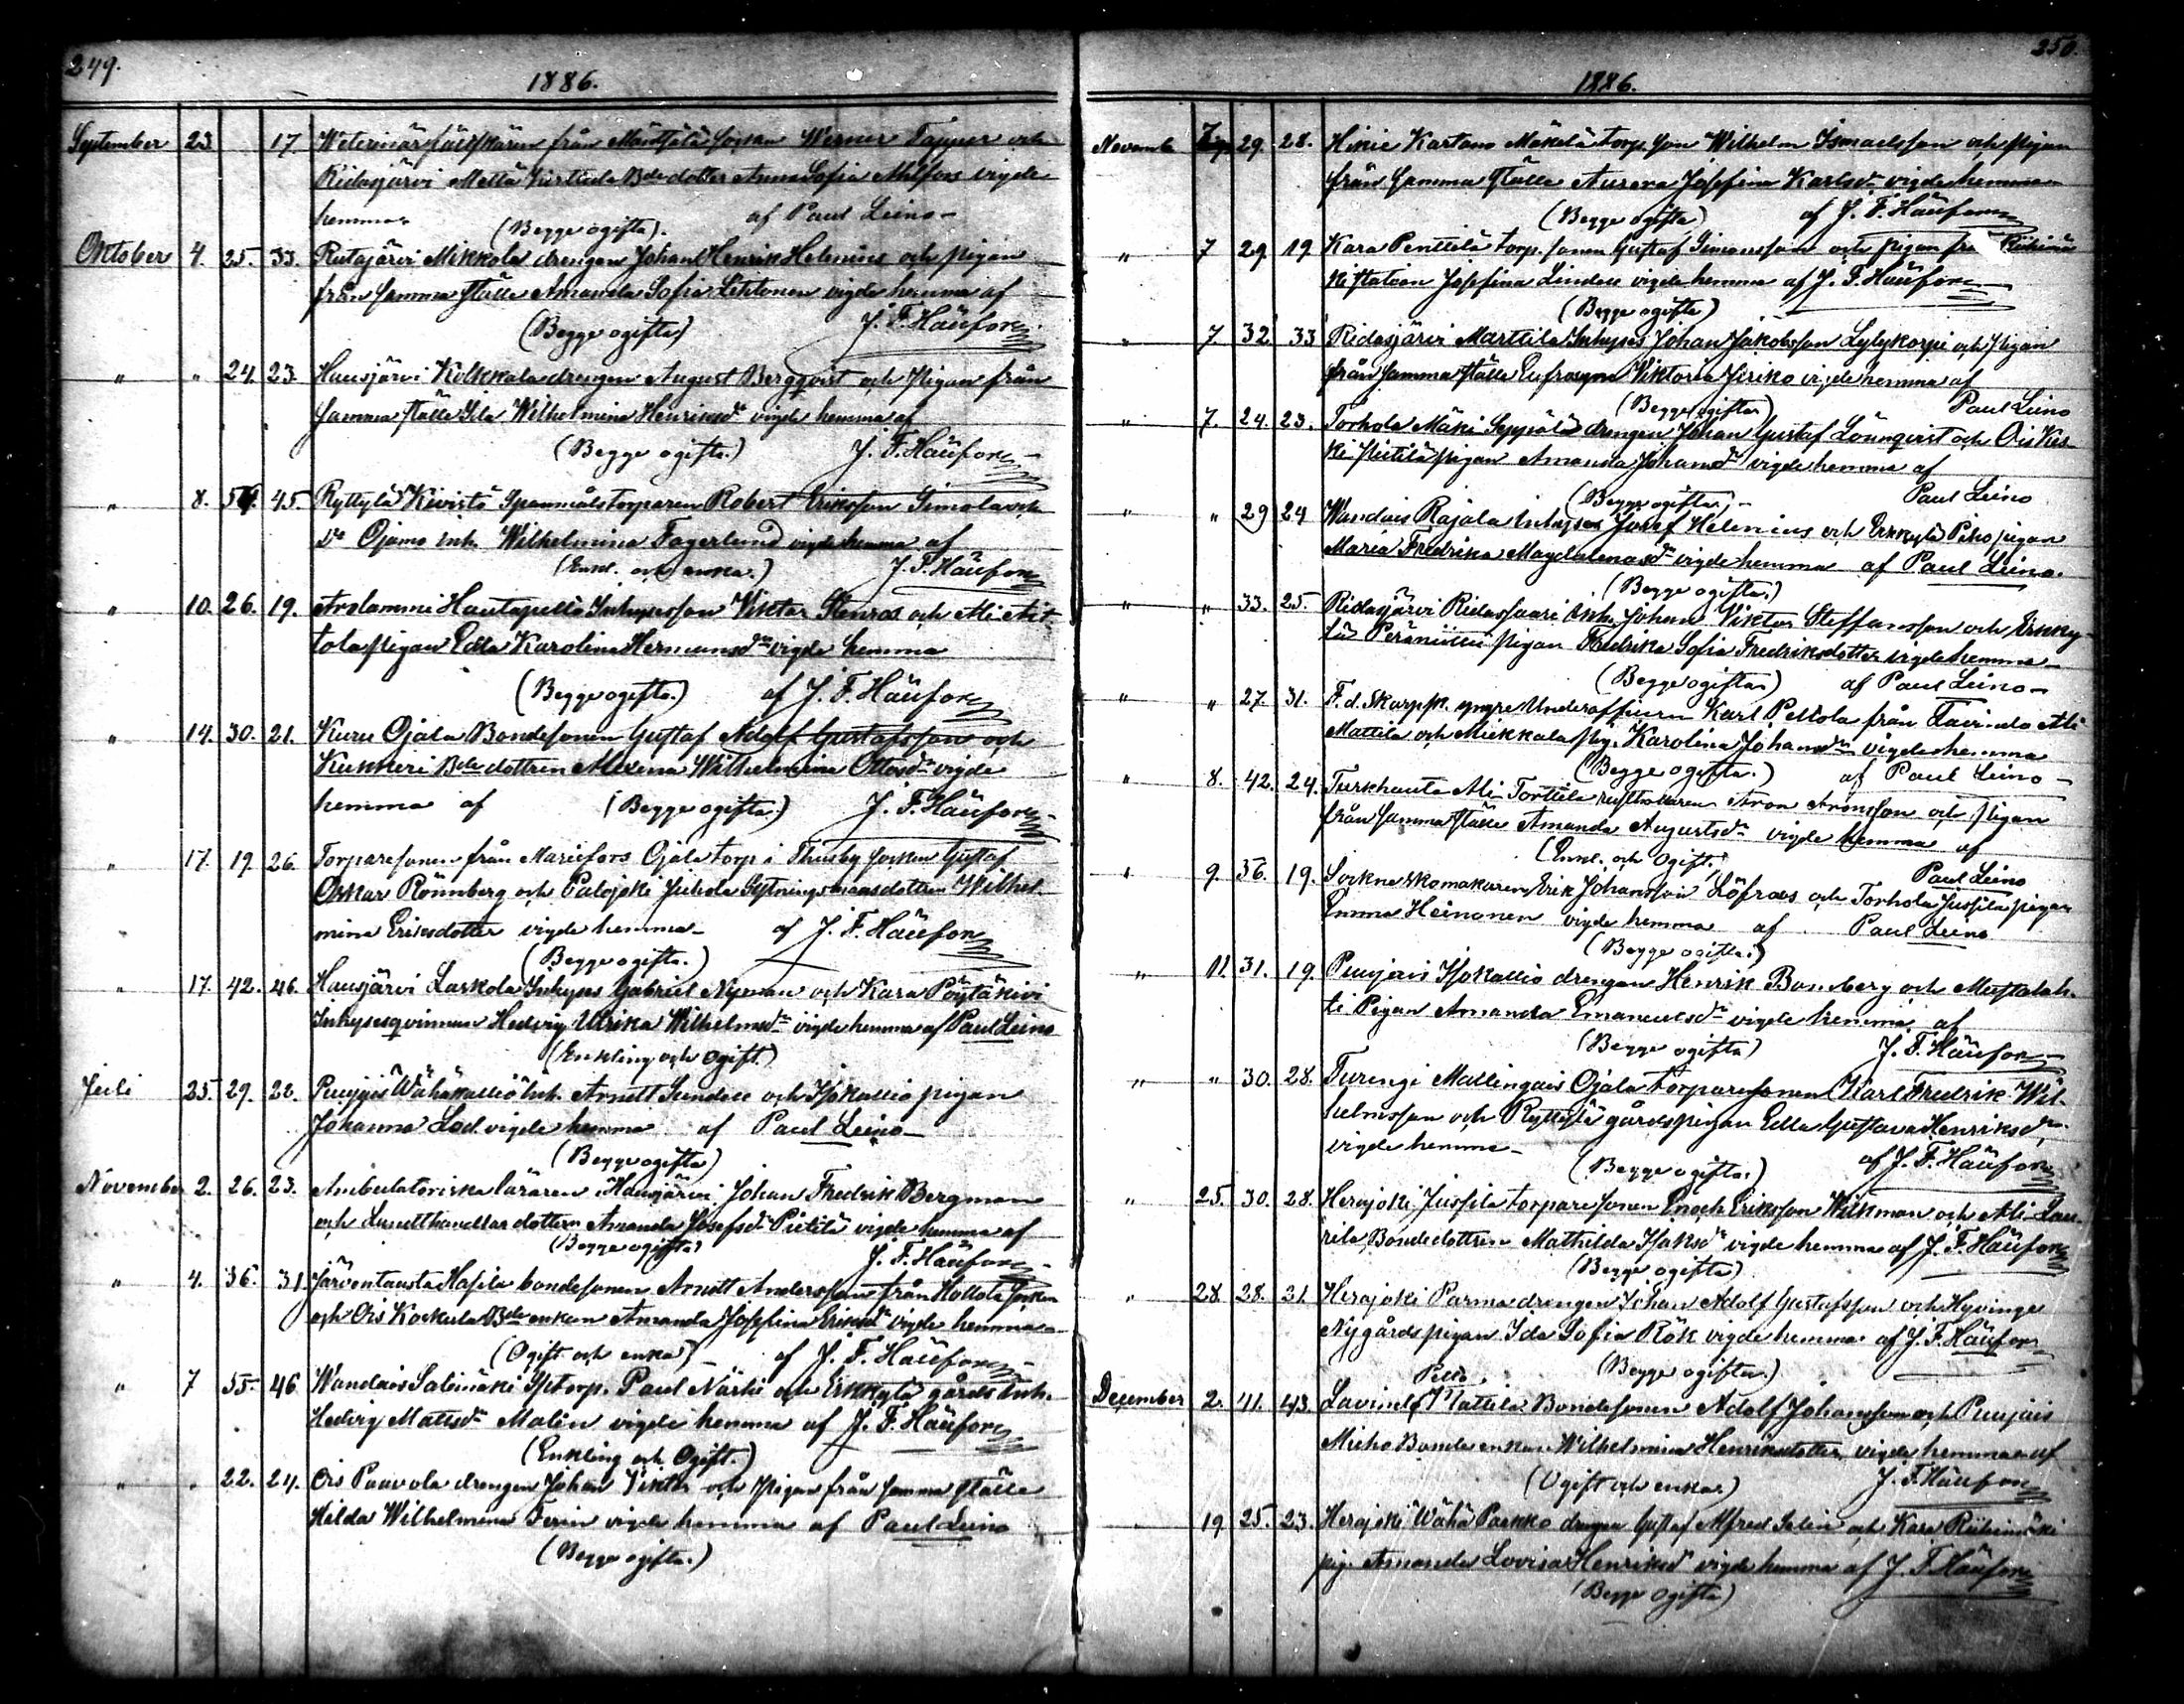 249.
1886.
September 23. 17. Weterinärfältskären från Mäntsälä socken Werner Tapper och
Ridasjärvi Bde dotter Anna Sofia vigde
hemma (Begge ogifta). af Paul Leino
Oktober 4. 25. 33. Rutajärvi Mikkola drengen Johan Henrik Helenius och pigan
från samma ställe Amanda Sofia Lehtonen vigde hemma af
(Begge ogifta) J. F. Häüfors
" " 24. 23. Hausjärvi Kolkkala drengen August Bergqvist och pigan från
samma ställe Ida Wilhelmina Henriksdr vigde hemma af
(Begge ogifta.) J. F. Häüfors
" 8. 45. Ryttylä Kivistö Spannmålstorparen Robert Eriksson Simola och
Ojamo inh. Wilhelmina Fagerlund vigde hemma af
(Enkl. och enka.) J. F. Häüfors
" 10. 26. 19. Arolammi Hautapelto Inhysesson Viktor Stenros och Ali Ait-
tola pigan Edla Karolina Hermansdr vigde hemma
(Begge ogifta.) af J. F. Häüfors
" 14. 30. 21. Kuru Ojala Bondesonen Gustaf Adolf Gustafsson och
Kukkeri Bde dottren Alexena Wilhelmina Ottosdr vigde
hemma af (Begge ogifta.) J. F. Häüfors
" 17. 19. 26. Torparesonen från Mariefors Ojala torp i Thusby socken Gustaf
Oskar Rönnberg och Palojoki Juhola Sytningsmansdottren Wilhel-
mina Eriksdotter vigde hemma af J. F. Häüfors
(Begge ogifta.)
" 17. 42. 46. Hausjärvi Laskola Inhyses Gabriel Nyman och Kara Pöytäkivi
Inhysesqvinnan Hedvig Ulrika Wilhelmsdr vigde hemma af Paul Leino
(Enkling och Ogift.)
Juli 25. 29. 22. Puujais Wähäkallio Inh. Arnett Sundell och Isokallio pigan
Johanna Lod. vigde hemma af Paul Leino
(Begge ogifta)
November 2. 26. 23. Ambulatoriska läraren i Hausjärvi Johan Fredrik Bergman
och dottern Amanda Josefsdr Pietilä vigde hemma af
(Begge ogifta) J. F. Häüfors
" 4. 36. 31. Järventausta Hasila bondesonen Arnett Andersson från Hollola socken
och Ois Kockula Bde enkan Amanda Josefina Eriksdr vigde hemma
(Ogift och enka) af J. F. Häüfors
" 7 55. 46 Wandais Salinäki Sptorp. Paul Närhi och Erkkylä gårds Inh.
Hedvig Mattsdr Malin vigde hemma af J. F. Häüfors
(Enkling och Ogift.)
" . 22. 24. Ois Paavola drengen Johan Viktor och pigan från samma ställe
Hilda Wilhelmina vigde hemma af Paul Leino
(Begge ogifta.)
250.
1886.
Novemb 7 29. 28. Hikie Kartano Mäkelä torp. son Wilhelm Ismaelsson och pigan
från samma ställe Aurora Josefina Karlsdr vigde hemma
(Begge ogifta) af J. F. Häüfors
" 7 29. 19. Kara Penttilä torp. sonen Gustaf Simonsson och pigan frå Riihimä
ki station Josefina Lindell vigde hemma af J. F. Häüfors
(Begge ogifta)
" 7 32. 33 Ridasjärvi Marttila Inhyses Johan Jakobsson Lylykorpi och pigan
från samma ställe Eufrosyne Viktoria vigde hemma af
(Begge ogifta) Paul Leino
" 7. 24. 23. Torhola Mäki Seppälä drengen Johan Gustaf Lönnqvist och Oi Kes-
ki Pietilä pigan Amanda Johansdr vigde hemma af
(Begge ogifta) Paul Leino
" " 29 24 Wandais Rajala Inhyses Josef Helenius och Erkkylä Piho pigan
Maria Fredrika Magdalenasdr vigde hemma af Paul Leino.
(Begge ogifta.)
" " 33. 25. Ridasjärvi Ridassaari Inh. Johan Viktor Steffansson och Erkky-
lä Peräniitti pigan Fredrika Sofia Fredriksdotter vigde hemma
(Begge ogifta) af Paul Leino
" " 27. 31. F. d. Skarpsk. yngre Underofficern Karl Peltola från Lavinto Ali
Mattila och Miekkala pig. Karolina Johansdr vigde hemma
(Begge ogifta.) af Paul Leino
" 8. 42. 24. Turkhauta Ali Torttila rusthållaren Aron Aronsson och pigan
från samma ställe Amanda Augustsdr vigde hemma af
(Enkl. och Ogift) Paul Leino
" 9. 56. 19. Sockneskomakaren Erik Johansson Löfroos och Torhola Jussila pigan
Emma Heinonen vigde hemma af Paul Leino
(Begge ogifta.)
" 11. 31. 19. Puujais Isokallio drengen Henrik Bomberg och Mustalah-
ti Pigan Amanda Emanuelsdr vigde hemma af
(Begge ogifta) J. F. Häüfors
" " 30. 28. Turengi Mallingais Ojala torparesonen Karl Fredrik Wil-
helmsson och Ryttylä gårdspigan Edla Gustava Henriksdr
vigde hemma (Begge ogifta.) af J. F. Häüfors
" 25. 30. 28. Herajoki Jussila torparesonen Enoch Eriksson Wikman och Ali Lau-
rila Bondedottren Mathilda Isaksdr vigde hemma af J. F. Häüfors
(Begge ogifta)
" 28. 28. 21. Herajoki Parma drengen Johan Adolf Gustafsson och Hyvinge
Nygårds pigan Ida Sofia Rök vigde hemma af J. F. Häüfors
(Begge ogifta.)
December 2. 41. 43. Lavinto Mattila Bondesonen Adolf Johansson och Puujais
Mieho Bonde enkan Wilhelmina Henriksdotter vigde hemma af
(Ogift och enka.) J. F. Häüfors
19 25. 23. Herajoki Wähä Parkko drengen Gustaf Alfred Salin och Kara Riihimäki
pig. Amanda Lovisa Henriksdr vigde hemma af J. F. Häüfors
(Begge ogifta)